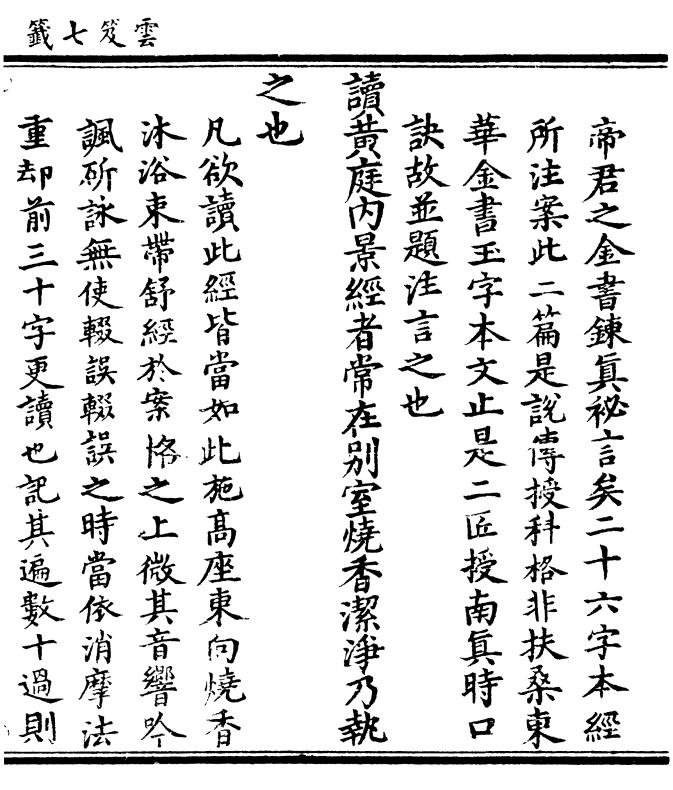 雲笈七籤
帝君之金書鍊眞祕言矣二十六字本經
所注案此二篇是說傳授科格非扶桑東
華金書玉字本文止是二匠授南眞時口
訣故並題注言之也
讀黄庭内景經者常在别室燒香潔淨乃執
之也
凡欲讀此經皆當如此施高座東向燒香
沐浴束帶舒經於案格之上微其音響吟
諷所詠無使輟誤輟誤之時當依消摩法
重却前三十字更讀也記其遍數十過則